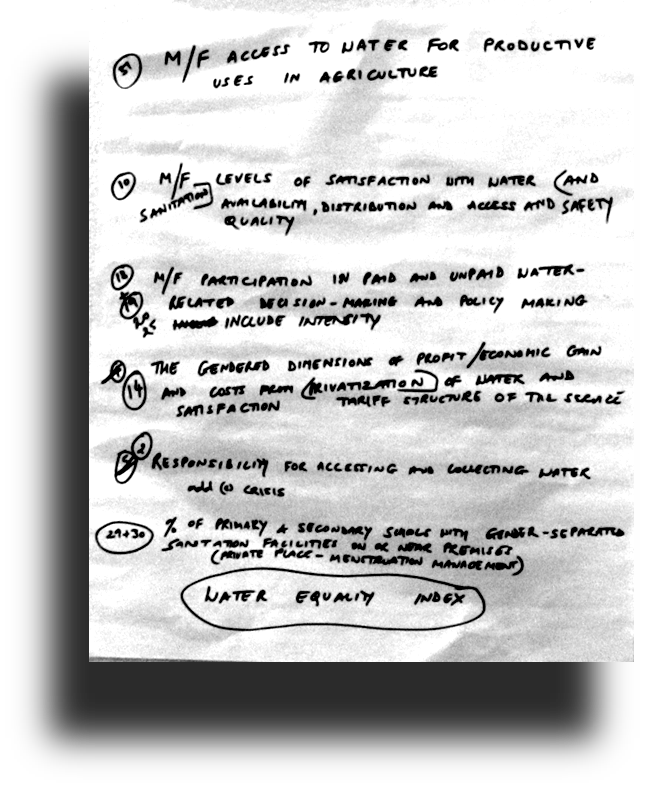 51 M/F ACCESS TO WATER FOR PRODUCTIVE
USES IN AGRICULTURE
10 M/F LEVELS OF SATISFACTION WITH WATER (AND
SANITATION) AVAILABILITY, DISTRIBUTION AND ACCESS AND SAFETY
QUALITY
18 M/F PARTICIPATION IN PAID AND UNPAID WATER-
19 RELATED DECISION-MAKING AND POLICY MAKING
20 25 INCLUDE INTENSITY
THE GENDERED DIMENSIONS OF PROFIT/ECONOMIC GAIN
14 AND COSTS FROM (PRIVATIZATION) OF WATER AND
SATISFACTION TARIFF STRUCTURE OF THE SERVICE
2 RESPONSIBILITY FOR ACCESSING AND COLLECTING WATER
add (a) CRISIS
29+30 % OF PRIMARY & SECONDARY SCHOOLS WITH GENDER-SEPARATED
SANITATION FACILITIES ON OR NEAR PREMISES
(PRIVATE PLACE - MENSTRUATION MANAGEMENT)
WATER EQUALITY INDEX